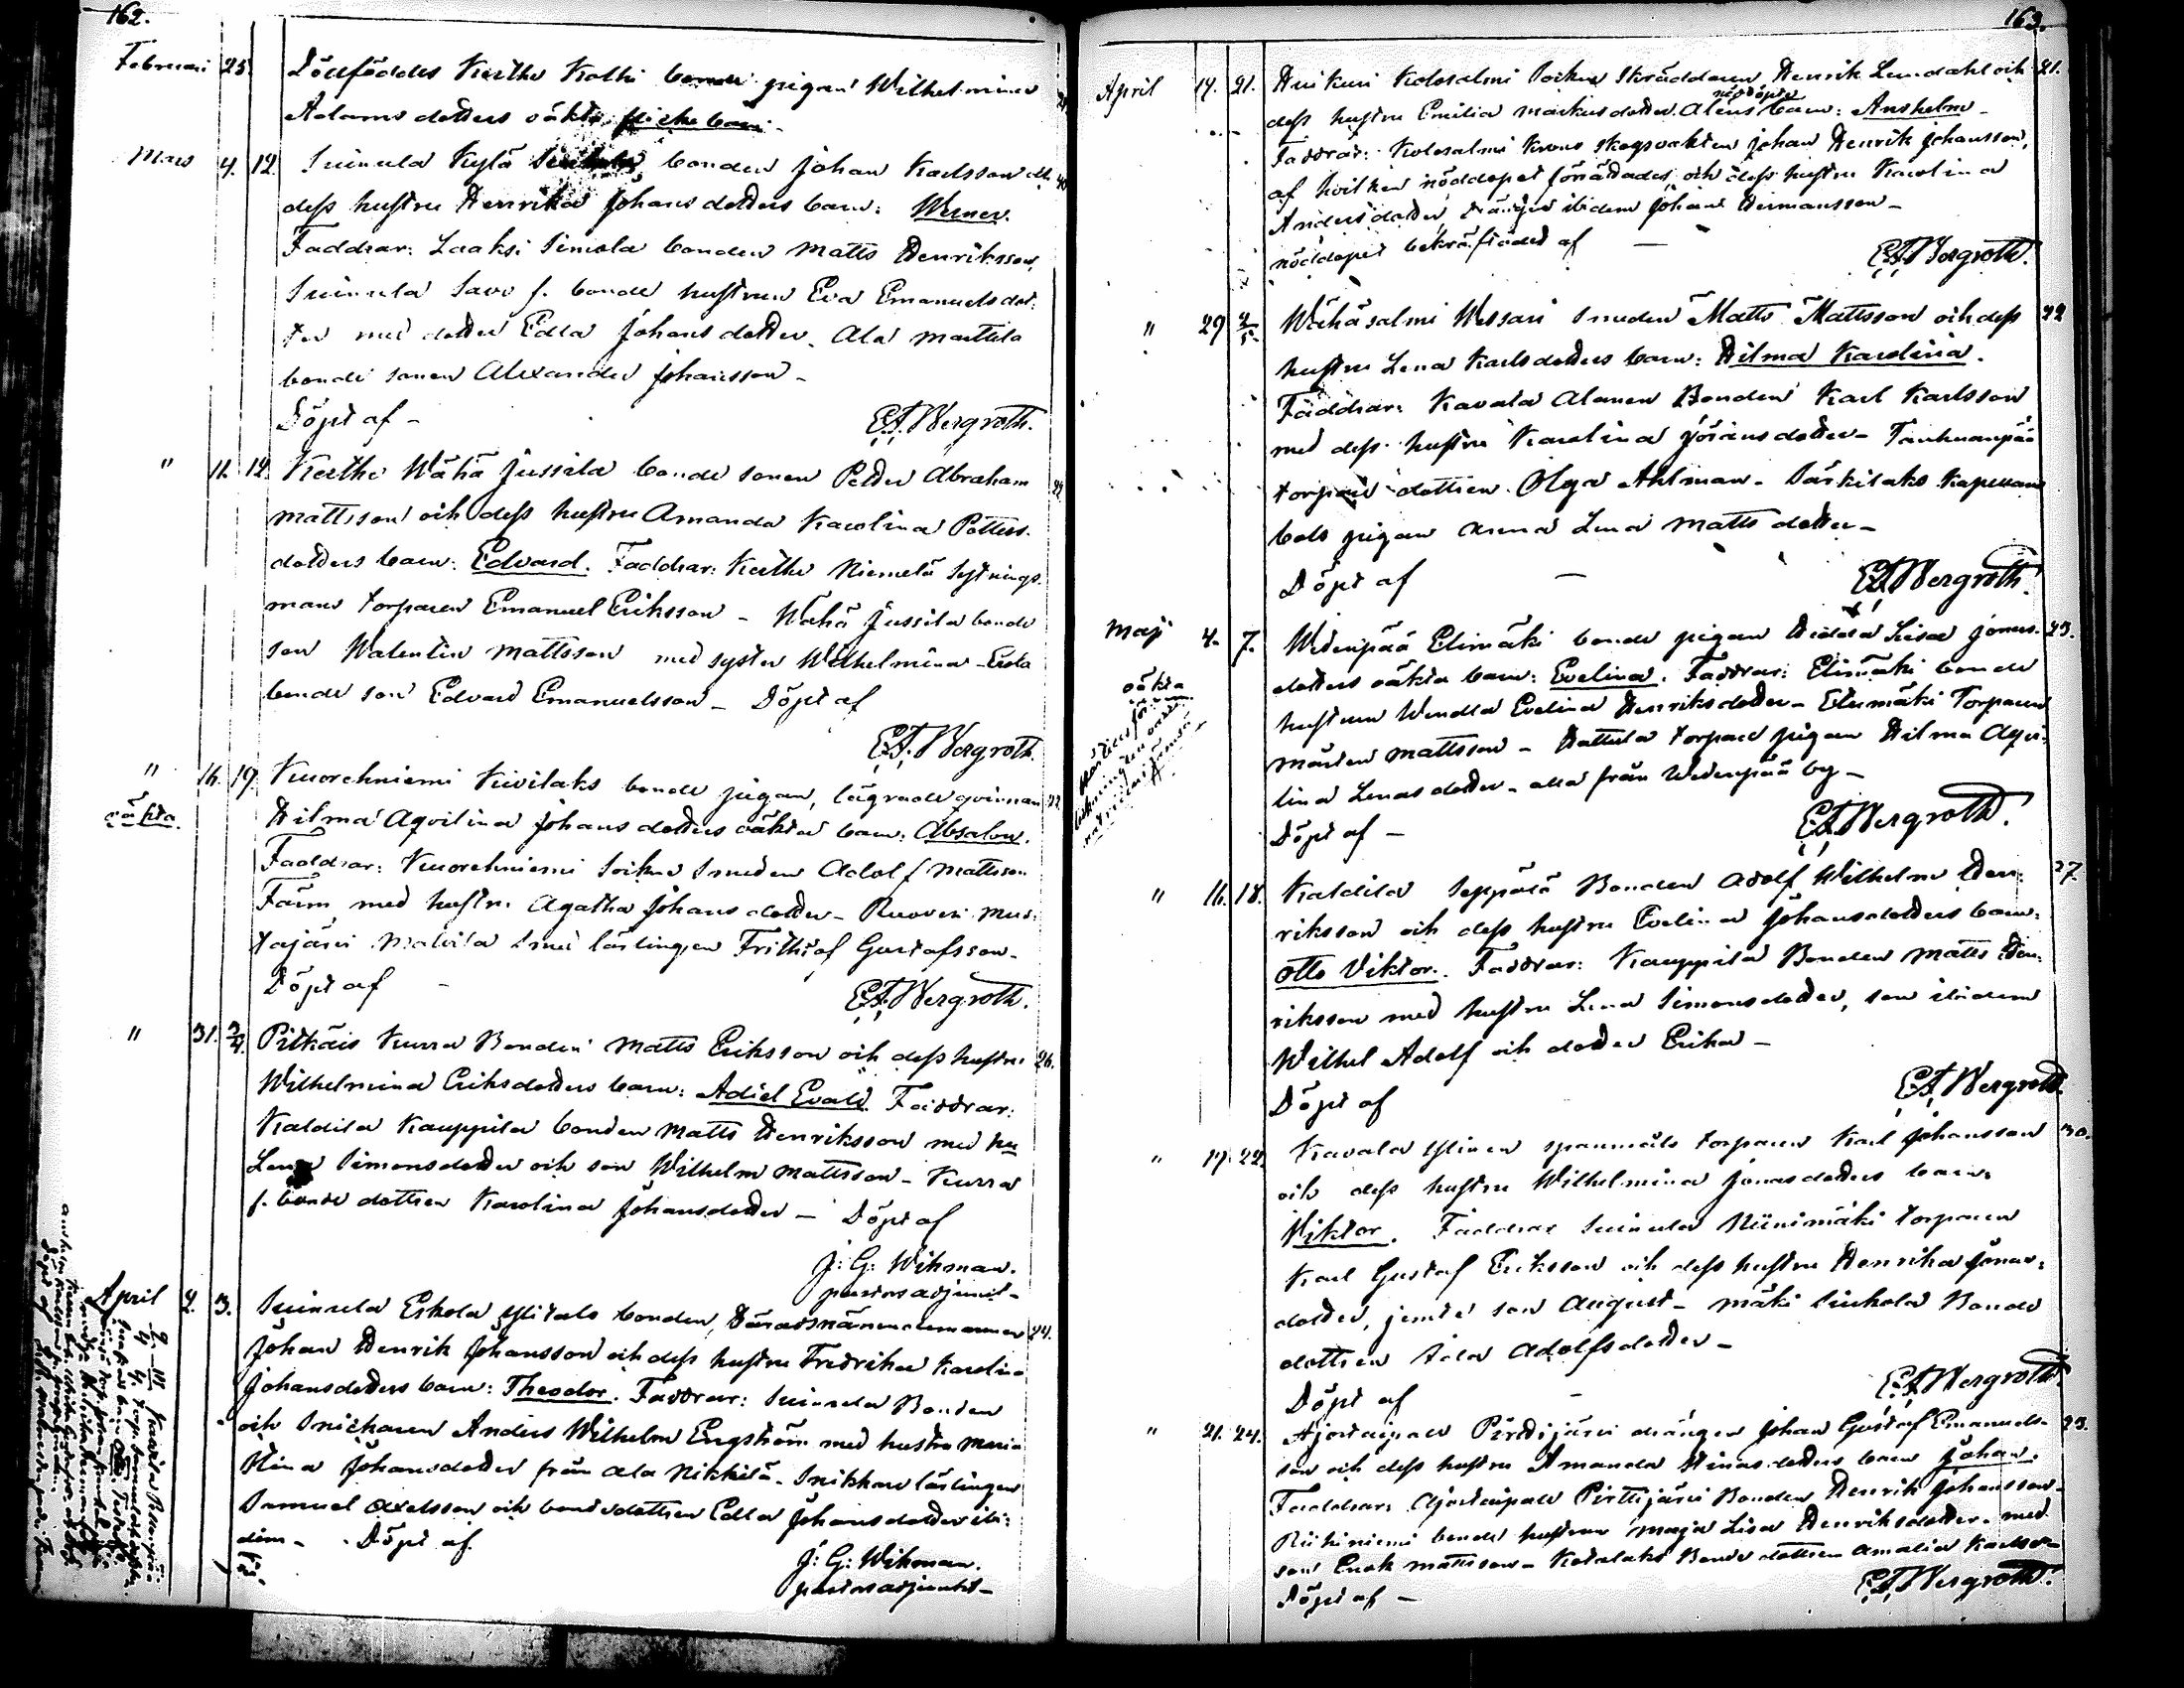 162.
Februari 25. Dödföddes Kerthe Kolhi bonde pigan Wilhelmina
Adams dotters oäkta flicke barn.
Mars 4. 12. Suinula Kylä bonden Johan Karlsson
dess hustru Henrika Johans dotters barn: Werner.
Faddrar: Laaksi Simola bonden Matts Henriksson,
Suinula Savo f. bonde hustrun Eva Emanuels dot-
ter med dotter Edla Johans dotter. Ala Marttila
bonde sonen Alexander Johansson -
Döpt af - E.F. Bergroth.
" 11. 12. Kerthe Wähä Jussila bonde sonen Petter Abraham 22
Mattsson och dess hustru Amanda Karolina Petters-
dotters barn: Edvard. Faddrar: Kerthe Niemelä Sytnings-
mans torparen Emanuel Eriksson - Wähä Jussila bonde
son Walentin Mattsson med syster Wilhelmina - Erola
bonde son Edvard Emanuelsson - Döpt af
E.F. Bergroth.
" 16. 19. Kuorehniemi Kivilaks bonde pigan, lägrade qvinnan 22
oäkta. Hilma Aqvilina Johans dotters oäkta barn: Absalon.
Faddrar: Kuorehniemi Soikus smeden Adolf Mattsson
Färm med hustru Agatha Johans dotter - Ruovesi Mus-
tajärvi Malvila smed lärlingen Frithiof Gustafsson -
Döpt af - E.F. Bergroth.
" 31. 3/4. Pitkäis Kurra Bonden Matts Eriksson och dess hustru 26.
Wilhelmina Eriksdotters barn: Adiel Evald. Faddrar:
Kaldila Kauppila bonden Matts Henriksson med hu
Lena Simonsdotter och son Wilhelm Mattsson - Kurra
f. bonde dottren Karolina Johansdotter - Döpt af
J: G: Wikman.
pastorsadjunkt -
April 2. 3. Suinula Eskola Ylitalo bonden, Häradsnämndemannen 24.
Johan Henrik Johansson och dess hustru Fredrika Karolina
Johansdotters barn: Theodor. Faddrar: Suinula Bonden
och Snickaren Anders Wilhelm Engström med hustru Maria
Stina Johansdotter från Ala Nikkilä. Snikkare lärlingen
Samuel Axelsson och bondedottren Edla Johansdotter ibi-
dem - Döpt af
J: G: Wikman.
pastorsadjunkt -
163.
April 14. 21. Huikuri Kolosalmi Soikus Skräddaren Henrik Lundahl och 21.
nöddöpte
dess hustru Emilia Markus dotter Alens barn: Anshelm -
Faddrar: Kolosalmi Krono skogsvakten Johan Henrik Johansson,
af hvilken nöddopet förrättades, och dess hustru Karolina
Anders dotter, drängen ibidem Johan Hermansson -
nöddopet bekräftades af - E.F. Bergroth.
" 29 2/5 Wähäsalmi Wessari smeden Matts Mattsson och dess 22
hustru Lena Karlsdotters barn: Hilma Karolina.
Faddrar: Kavala Alanen Bonden Karl Karlsson
med dess hustru Karolina Göransdotter - Tanhuanpää
torpare dottren Olga Ahlman - Särkilaks Kapellans
bols pigan Anna Lena Matts dotter -
Döpt af - E.F. Bergroth.
Maj 4. 7. Wedenpää Elimäki bonde pigan Hedda Lisa Jonas- 23.
oäkta dotters oäkta barn: Evelina. Faddrar: Elimäki bonde
hustrun Wendla Evelina Henriksdotter - Elumäki Torparen
Mårten Mattsson - Hattula torpare pigan Hilma Aqvi-
lina Lenas dotter - alla från Wedenpää by -
Döpt af - E.F. Bergroth.
" 16. 18. Kaldila Seppälä Bonden Adolf Wilhelm Hen- 27.
riksson och dess hustru Evelina Johansdotters barn:
Otto Viktor. Faddrar: Kauppila Bonden Matts Hen-
riksson med hustru Lena Simonsdotter, son ibidem
Wilhel Adolf och dotter Erika -
Döpt af E.F. Bergroth.
" 17. 22. Kavala Ylinen spannmåls torparen Karl Johansson 30.
och dess hustru Wilhelmina Jonasdotters barn:
Viktor. Faddrar Suinula Niinimäki torparen
Karl Gustaf Eriksson och dess hustru Henrika Jonas-
dotter, jemte son August - Mäki Sinkola Bonde
dottren Ida Adolfsdotter -
Döpt af - E.F. Bergroth.
" 21. 24. Ajostaipale Pirttijärvi drängen Johan Gustaf Emanuels- 23.
son och dess hustru Amanda Stinas dotters barn Johan.
Faddrar: Ajostaipale Pirttijärvi Bonden Henrik Johansson -
Riihiniemi bonde hustrun Maja Lisa Henriksdotter - med
son Enok Mattsson - Kotalaks Bonde dottren Amalia Karlsson
Döpt af - E.F. Bergroth.